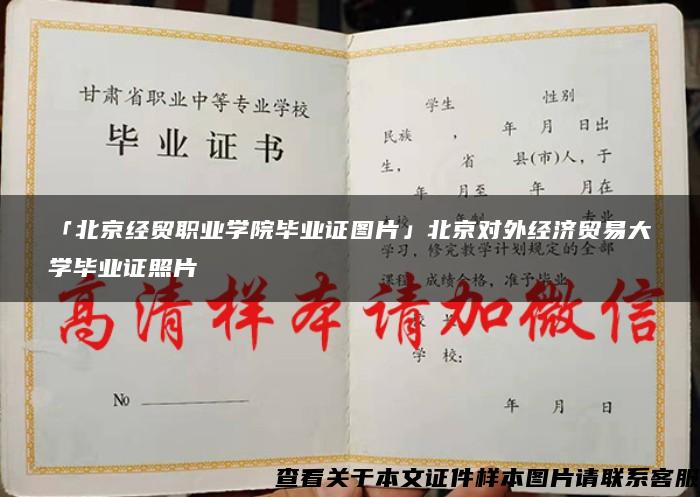 甘肃省职业中等专业学校
毕业证书
No
学生 性别
民族 ， 年 月 日出
生， 省 县(市)人，于
年 月至 年 月在
专业
学习，修完教学计划规定的全部
课程，成绩合格，准予毕业。
学 校：
年 月 日
「北京经贸职业学院毕业证图片」北京对外经济贸易大
学毕业证照片
高清样本请加微信
查看关于本文证件样本图片请联系客服